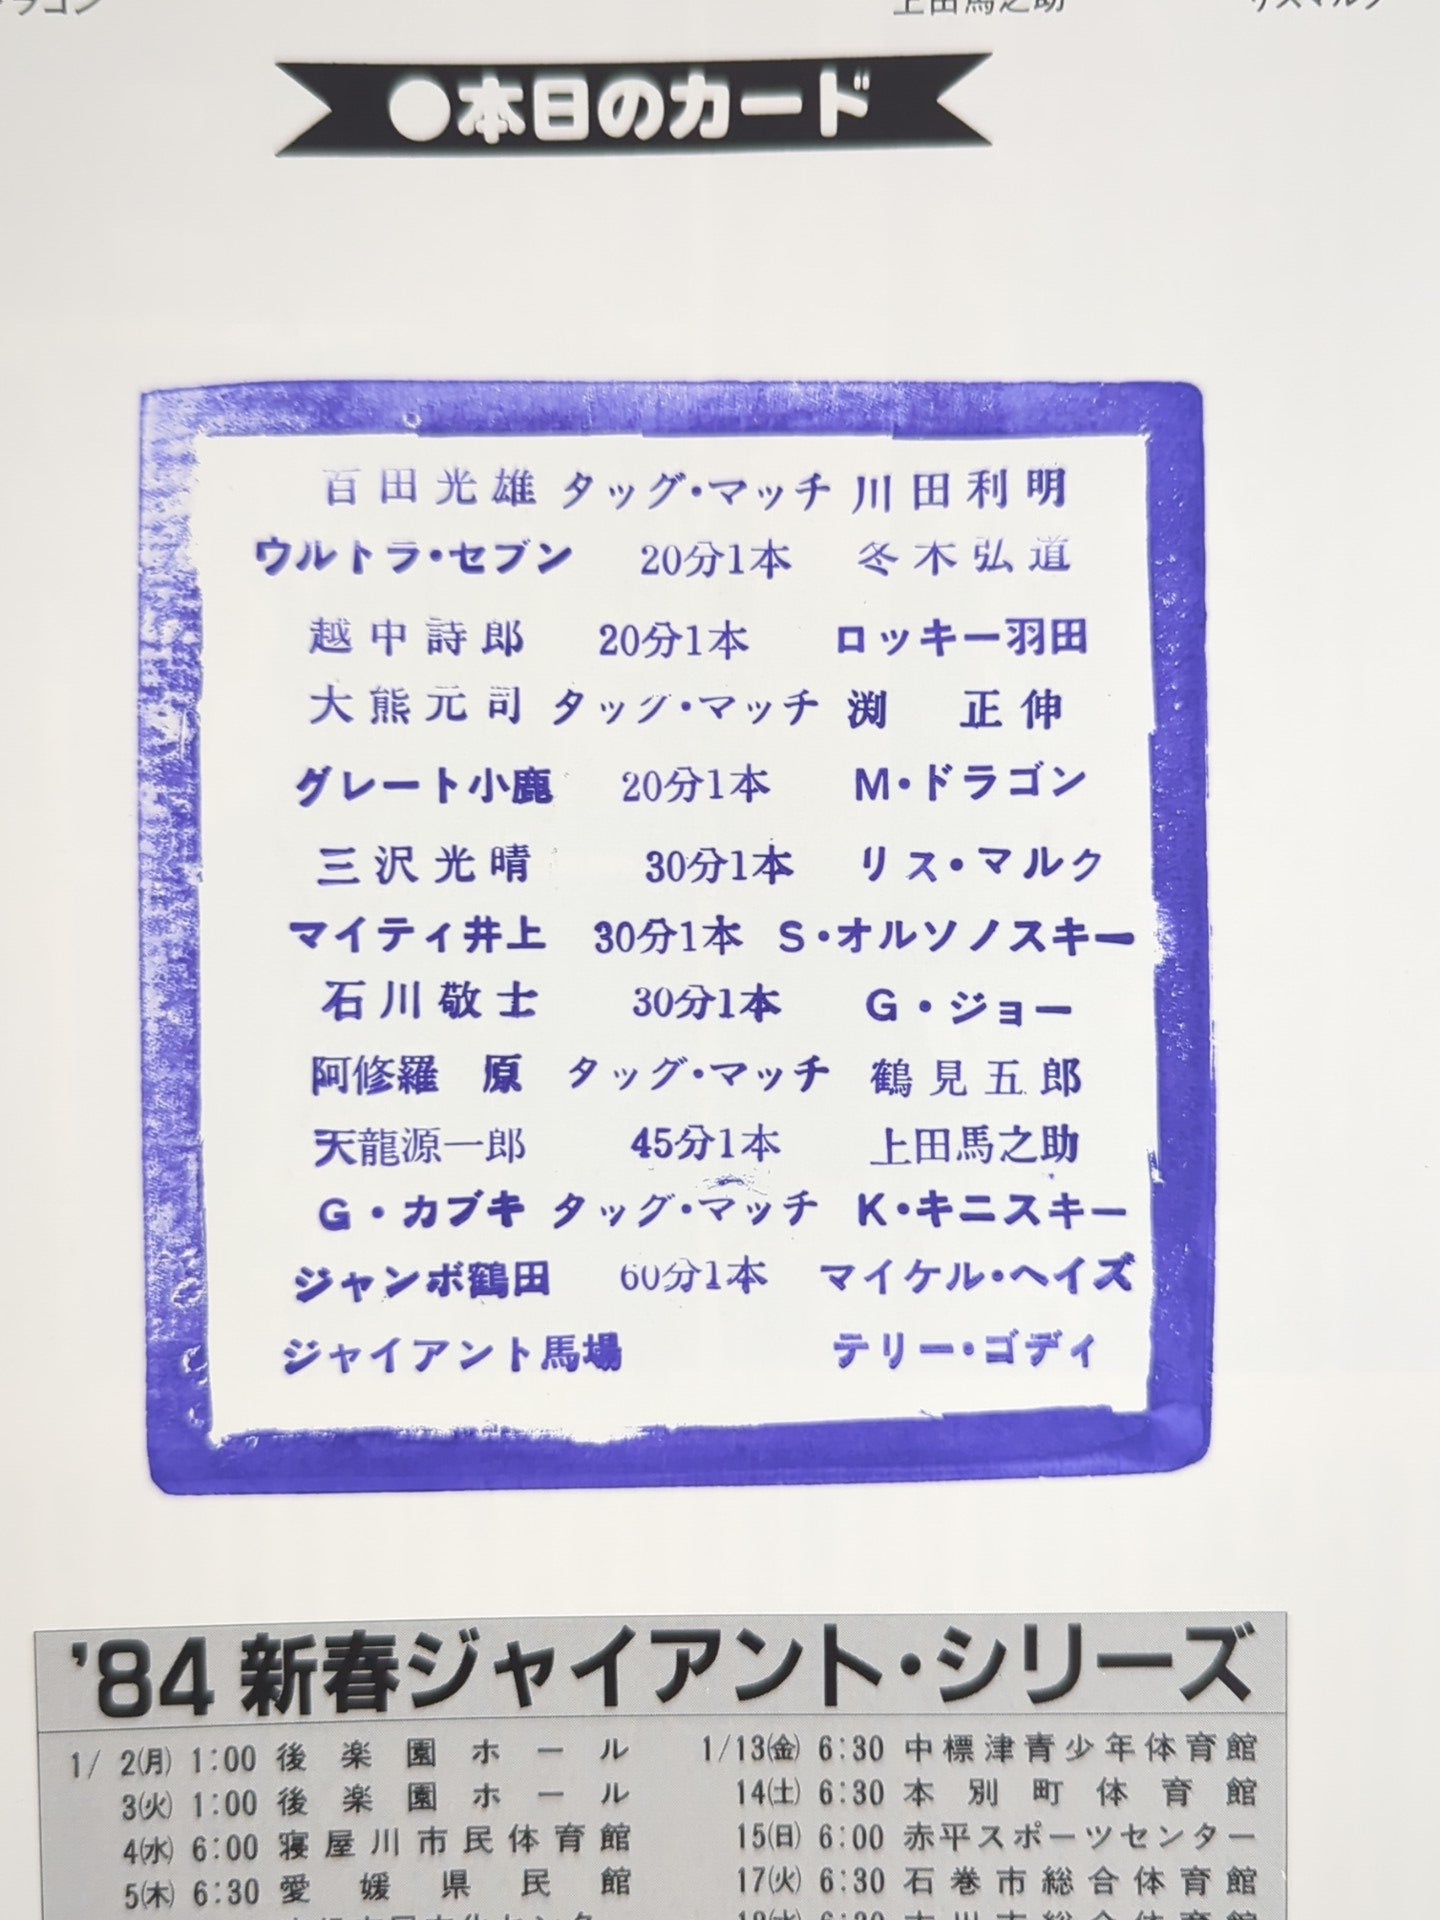 ドラゴン 上田馬之助 リスマルク
●本日のカード
百田光雄 タッグ・マッチ 川田利明
ウルトラ・セブン 20分1本 冬木弘道
越中詩郎 20分1本 ロッキー羽田
大熊元司 タッグ・マッチ 渕 正伸
グレート小鹿 20分1本 M・ドラゴン
三沢光晴 30分1本 リス・マルク
マイティ井上 30分1本 S・オルソノスキー
石川敬士 30分1本 G・ジョー
阿修羅 原 タッグ・マッチ 鶴見五郎
天龍源一郎 45分1本 上田馬之助
G・カブキ タッグ・マッチ K・キニスキー
ジャンボ鶴田 60分1本 マイケル・ヘイズ
ジャイアント馬場 テリー・ゴディ
'84 新春ジャイアント・シリーズ
1/ 2(月) 1:00 後楽園ホール
3(火) 1:00 後楽園ホール
4(水) 6:00 寝屋川市民体育館
5(木) 6:30 愛媛県民館
1/13(金) 6:30 中標津青少年体育館
14(土) 6:30 本別町体育館
15(日) 6:00 赤平スポーツセンター
17(火) 6:30 石巻市総合体育館